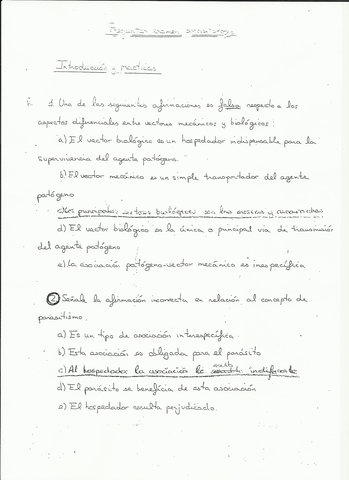 Preguntas examen parasitología
Introducción y prácticas
1. Una de las siguientes afirmaciones es falsa respecto a los
aspectos diferenciales entre vectores mecánicos y biológicos:
a) El vector biológico es un hospedador indispensable para la
supervivencia del agente patógeno.
b) El vector mecánico es un simple transportador del agente
patógeno
c) Los principales vectores biológicos son las moscas y cucarachas
d) El vector biológico es la única o principal vía de transmisión
del agente patógeno
e) La asociación patógeno-vector mecánico es inespecífica
2 Señale la afirmación incorrecta en relación al concepto de
parasitismo.
a) Es un tipo de asociación interespecífica
b) Esta asociación es obligada para el parásito
c) Al hospedador la asociación le resulta indiferente
d) El parásito se beneficia de esta asociación
e) El hospedador resulta perjudicado.